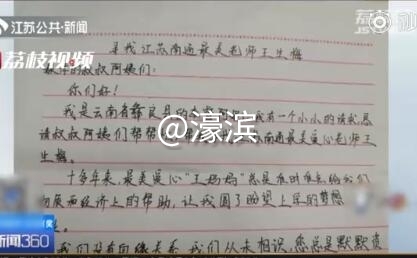 江苏公共·新闻
荔枝视频
寻找江苏南通最美老师王生梅
媒体的叔叔阿姨们:
你们好!
我是云南省彝良县的 我有一个小小的请求,恳
请叔叔阿姨们帮帮 南通最美爱心老师王
生梅。
@濠滨
十多年来,最美爱心“王妈妈”总是准时准点给我们
和经济上的帮助,让我圆了盼望上学的梦想
我们没有血缘关系,我们从未相识,您总是默默贡
新闻360